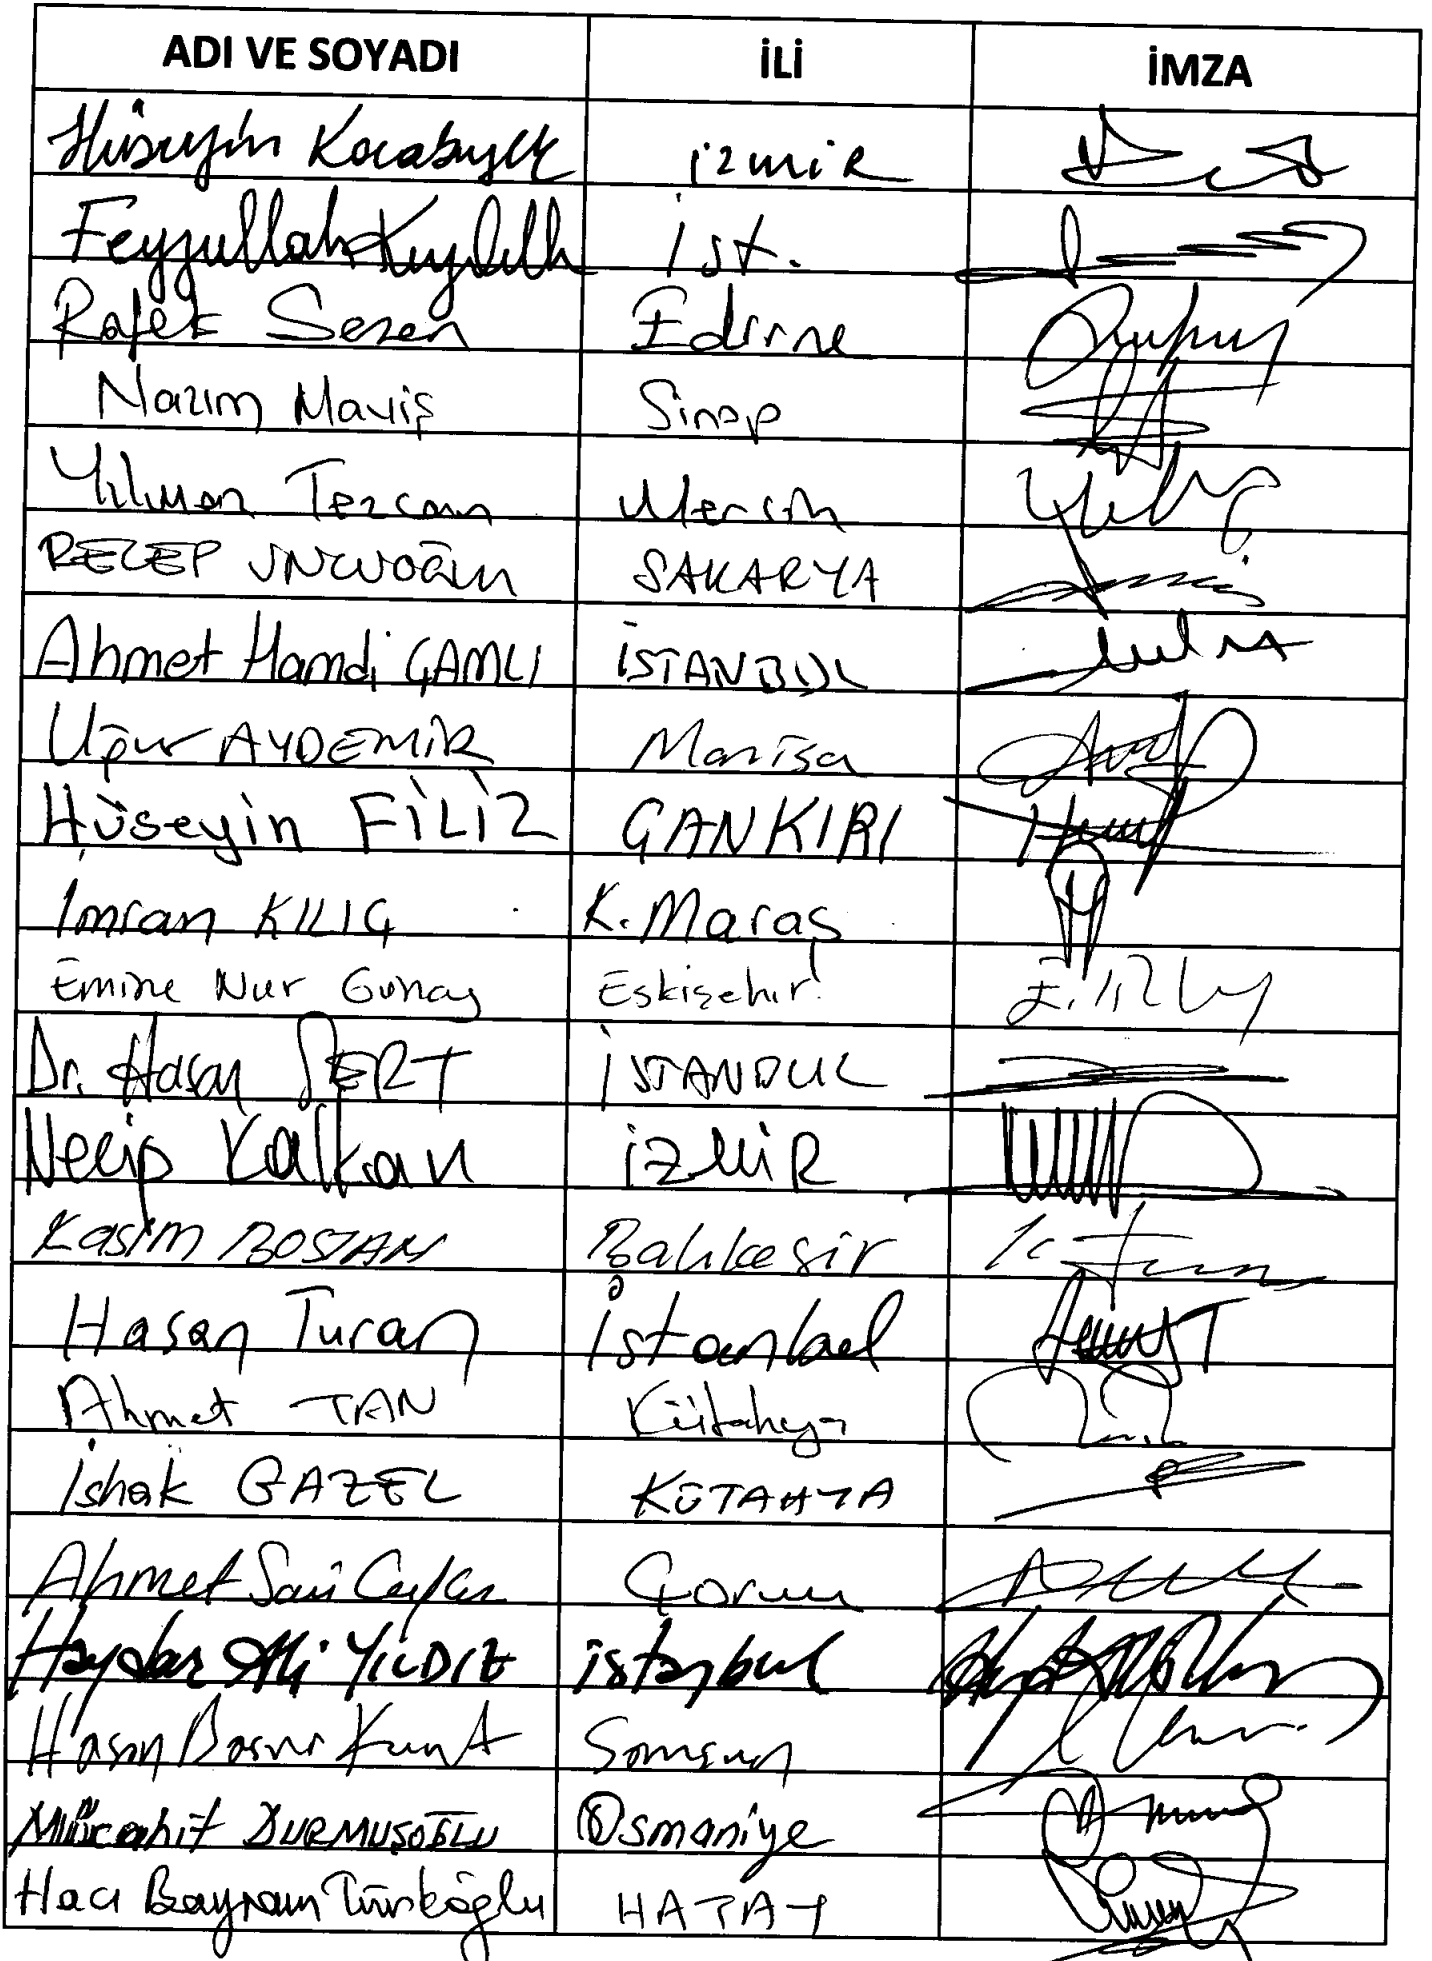 ADI VE SOYADI İLİ İMZA
Hüseyin Kocabıyık izmir
Feyzullah Kıyıklık İst.
Rafet Sezen Edirne
Nazım Maviş Sinop
Yılmaz Tezcan Mersin
RECEP UNCUOĞLU SAKARYA
Ahmet Hamdi ÇAMLI İSTANBUL
Uğur AYDEMİR Manisa
Hüseyin FİLİZ ÇANKIRI
İmran KILIÇ K. Maraş
Emine Nur Günay Eskişehir
Dr. Hasan SERT İSTANBUL
Necip Kalkan İZMİR
Kasım BOSTAN Balıkesir
Hasan Turan İstanbul
Ahmet TAN Kütahya
İshak GAZEL KÜTAHYA
Ahmet Sami Ceylan Çorum
Haydar Ali YILDIZ istanbul
Hasan Basri Kurt Samsun
Mücahit DURMUŞOĞLU Osmaniye
Hacı Bayram Türkoğlu HATAY